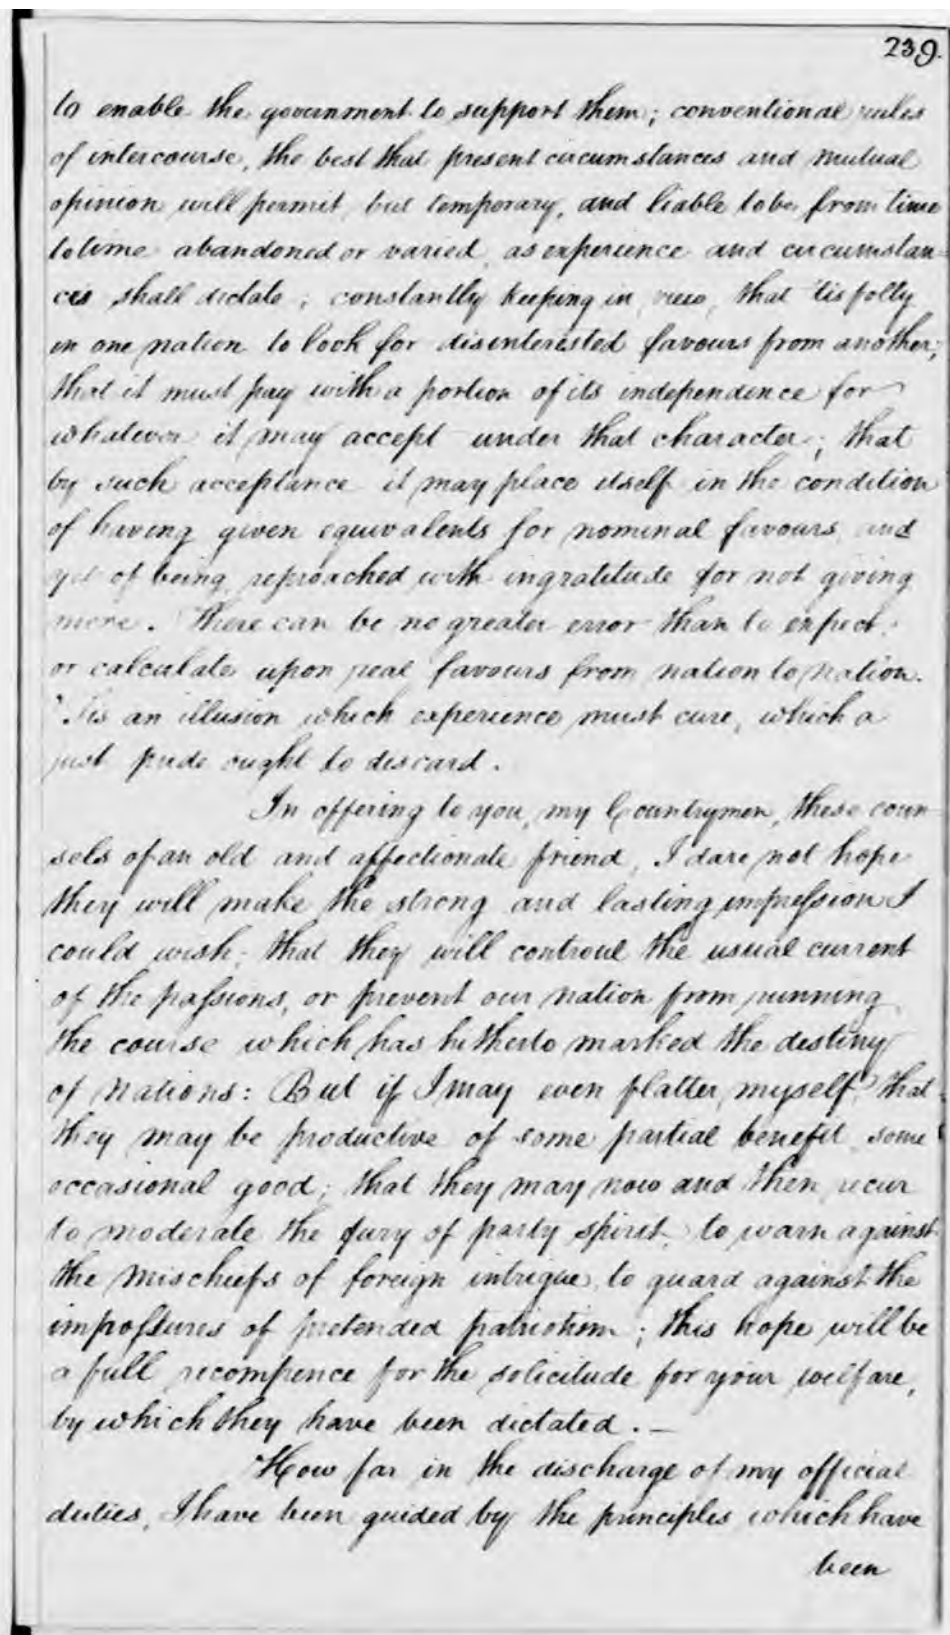 239.
to enable the government to support them; conventional rules
of intercourse, the best that present circumstances and mutual
opinion will permit, but temporary, and liable to be from time
to time abandoned or varied, as experience and circumstan-
ces shall dictate; constantly keeping in view, that 'tis folly
in one nation to look for disinterested favours from another;
that it must pay with a portion of its independence for
whatever it may accept under that character; that
by such acceptance it may place itself in the condition
of having given equivalents for nominal favours and
yet of being reproached with ingratitude for not giving
more. There can be no greater error than to expect,
or calculate upon real favours from nation to nation.
'Tis an illusion which experience must cure, which a
just pride ought to discard.
In offering to you, my Countrymen, these coun-
sels of an old and affectionate friend, I dare not hope
they will make the strong and lasting impression I
could wish; that they will controul the usual current
of the passions, or prevent our nation from running
the course which has hitherto marked the destiny
of Nations: But if I may even flatter myself that
they may be productive of some partial benefit, some
occasional good; that they may now and then recur
to moderate the fury of party spirit, to warn against
the mischiefs of foreign intrigue, to guard against the
impostures of pretended patriotism; this hope will be
a full recompence for the solicitude for your welfare,
by which they have been dictated. —
How far in the discharge of my official
duties, I have been guided by the principles which have
been